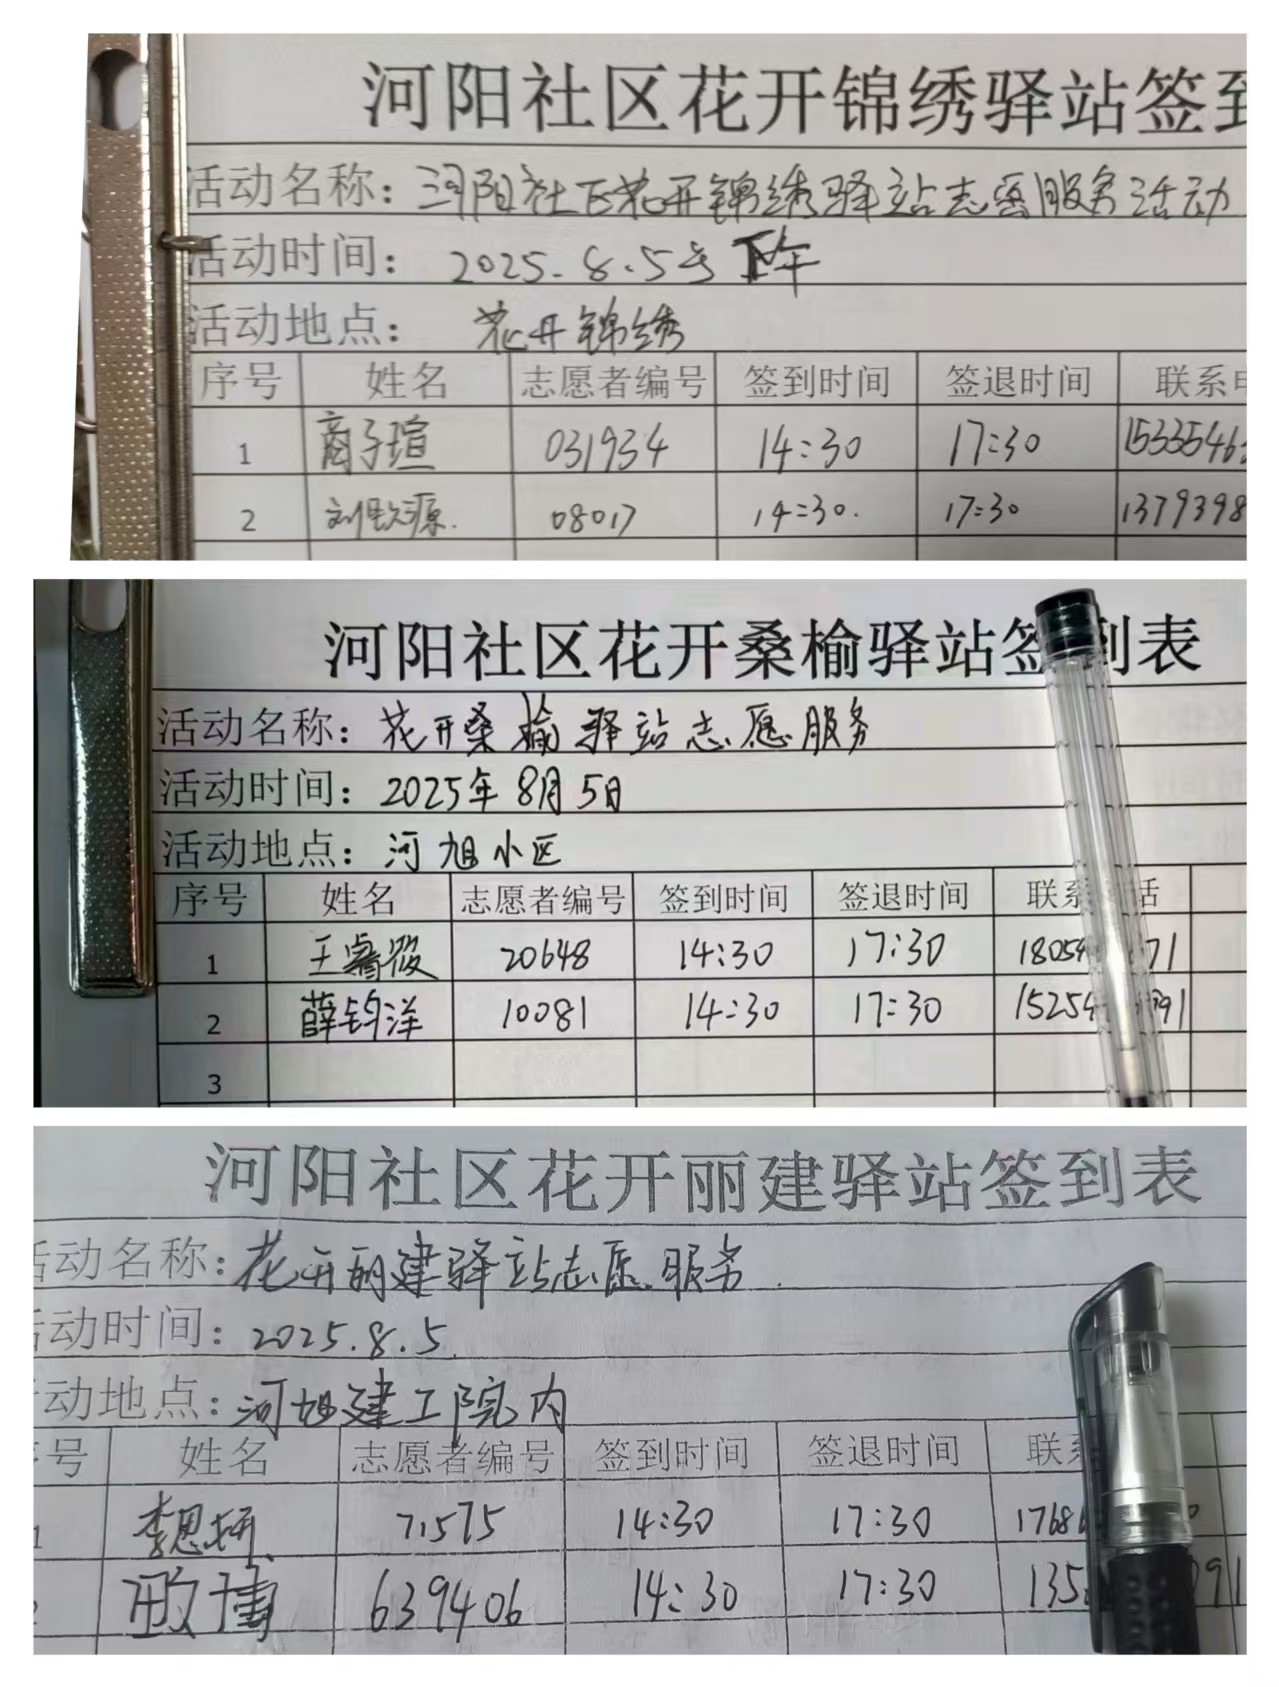 河阳社区花开锦绣驿站签到
活动名称：河阳社区花开锦绣驿站志愿服务活动
活动时间：2025.8.5号下午
活动地点：花开锦绣
序号 姓名 志愿者编号 签到时间 签退时间 联系电
1 商子瑄 031934 14:30 17:30 1533546
2 刘钦源. 08017 14:30. 17:30 1379398
河阳社区花开桑榆驿站签到表
活动名称：花开桑榆驿站志愿服务
活动时间：2025年8月5日
活动地点：河旭小区
序号 姓名 志愿者编号 签到时间 签退时间 联系 话
1 王睿 20648 14:30 17:30 18054 71
2 薛钧洋 10081 14:30 17:30 15254 391
3
河阳社区花开丽建驿站签到表
活动名称：花开丽建驿站志愿服务
活动时间：2025.8.5
动地点：河旭建工院内
号 姓名 志愿者编号 签到时间 签退时间 联系
1 李思妍 71575 14:30 17:30 1768
2 639406 14:30 17:30 135 91